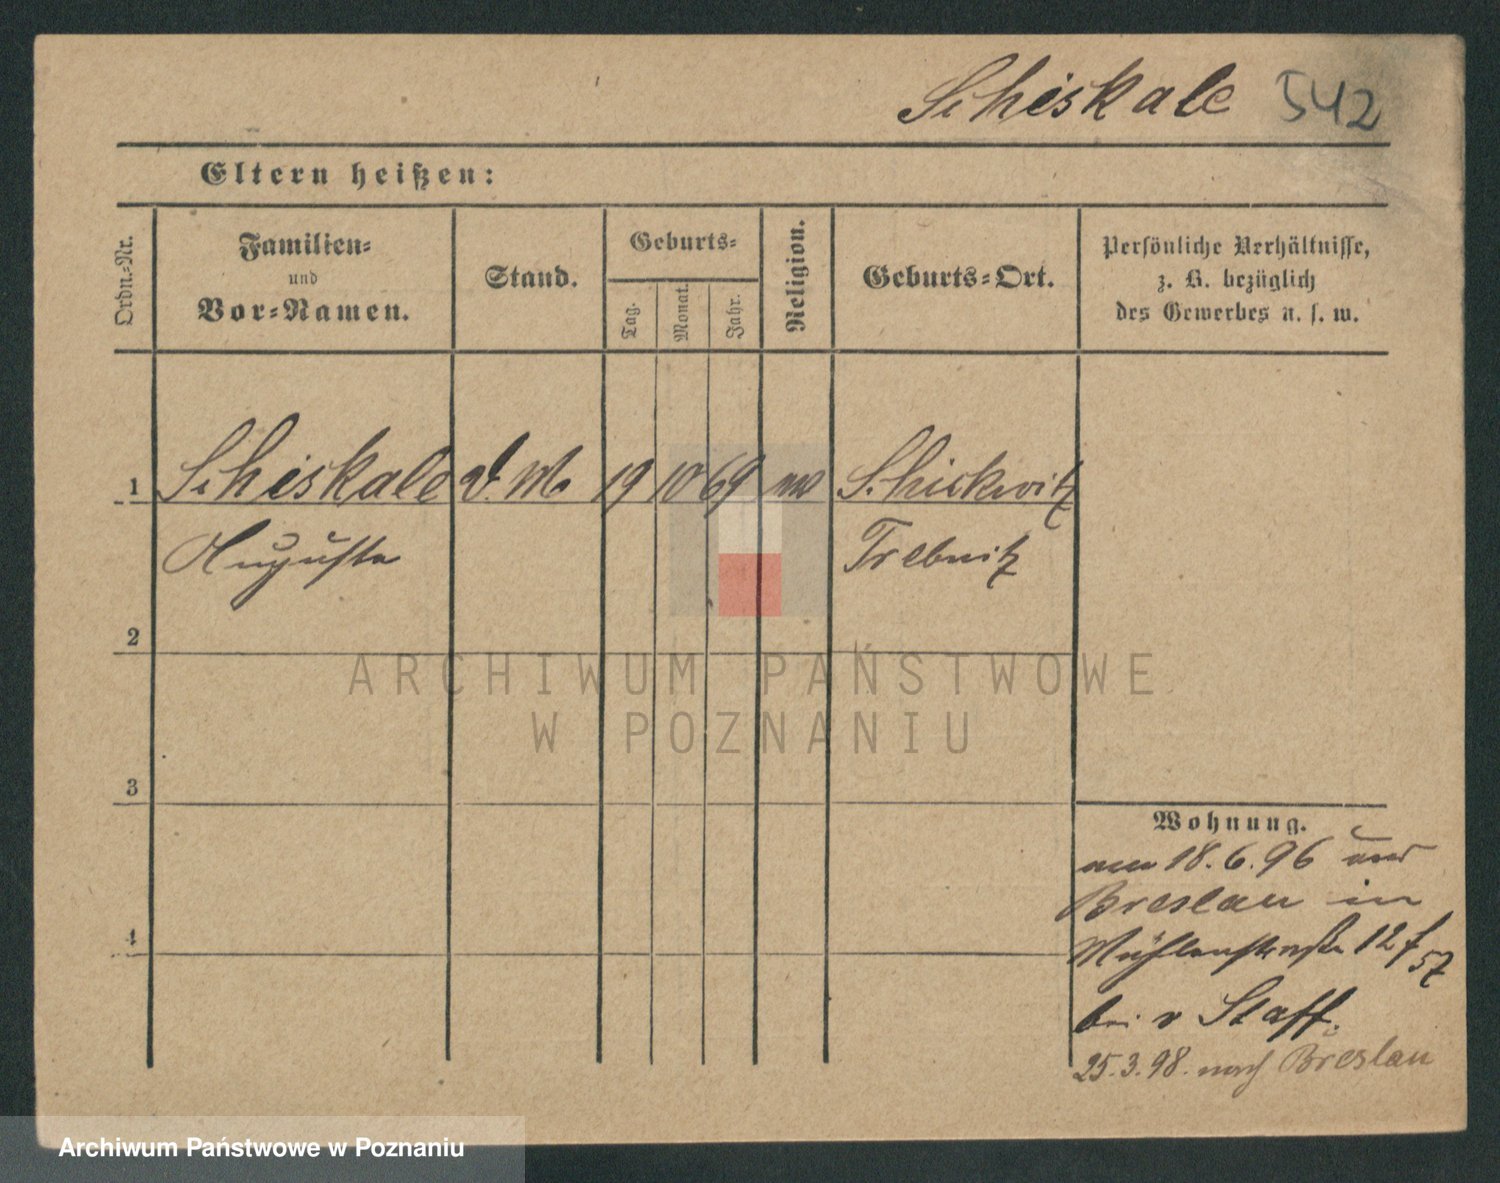 Schiskale 542
Eltern heißen:
Ordn.-Nr.
Familien-
und
Vor-Namen.
Stand.
Geburts-
Tag.
Monat.
Jahr.
Religion.
Geburts-Ort.
Persönliche Verhältnisse,
z. B. bezüglich
des Gewerbes u. s. w.
1 Schiskale d. M. 19 10 69 Schickwitz
Auguste Trebnitz
2
3
4
Wohnung.
18.6.96 aus
Breslau in
Mühlenstraße 12 f 57
bei v Staff.
25.3.98. nach Breslau
ARCHIWUM PAŃSTWOWE
W POZNANIU
Archiwum Państwowe w Poznaniu